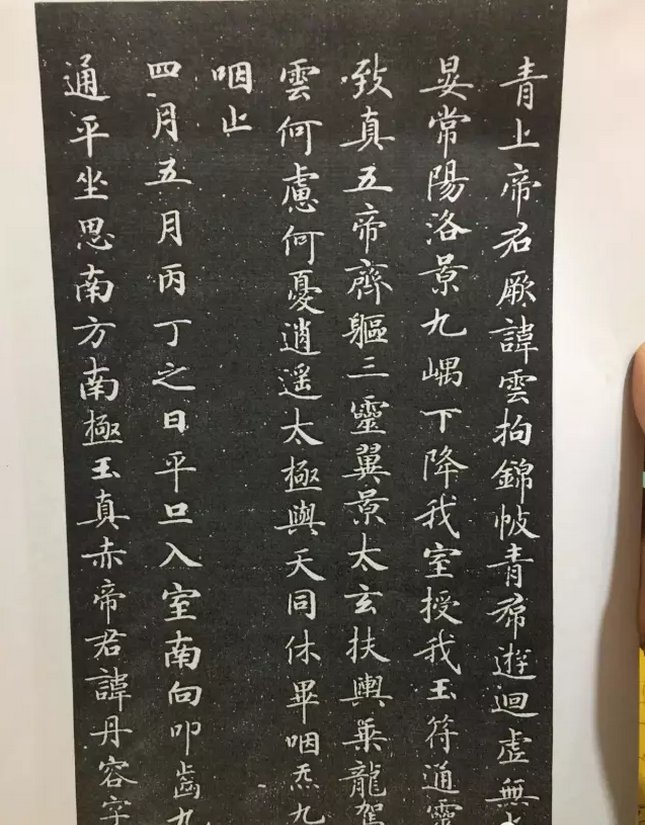 青上帝君厥諱雲拘錦帔青帬遊迴虛無
晏常陽洛景九嵎下降我室授我玉符通靈
致真五帝齊軀三靈翼景太玄扶輿乗龍駕
雲何慮何憂逍遥太極與天同休畢咽炁九
咽止
四月五月丙丁之日平旦入室南向叩齒九
通平坐思南方南極玉真赤帝君諱丹容字